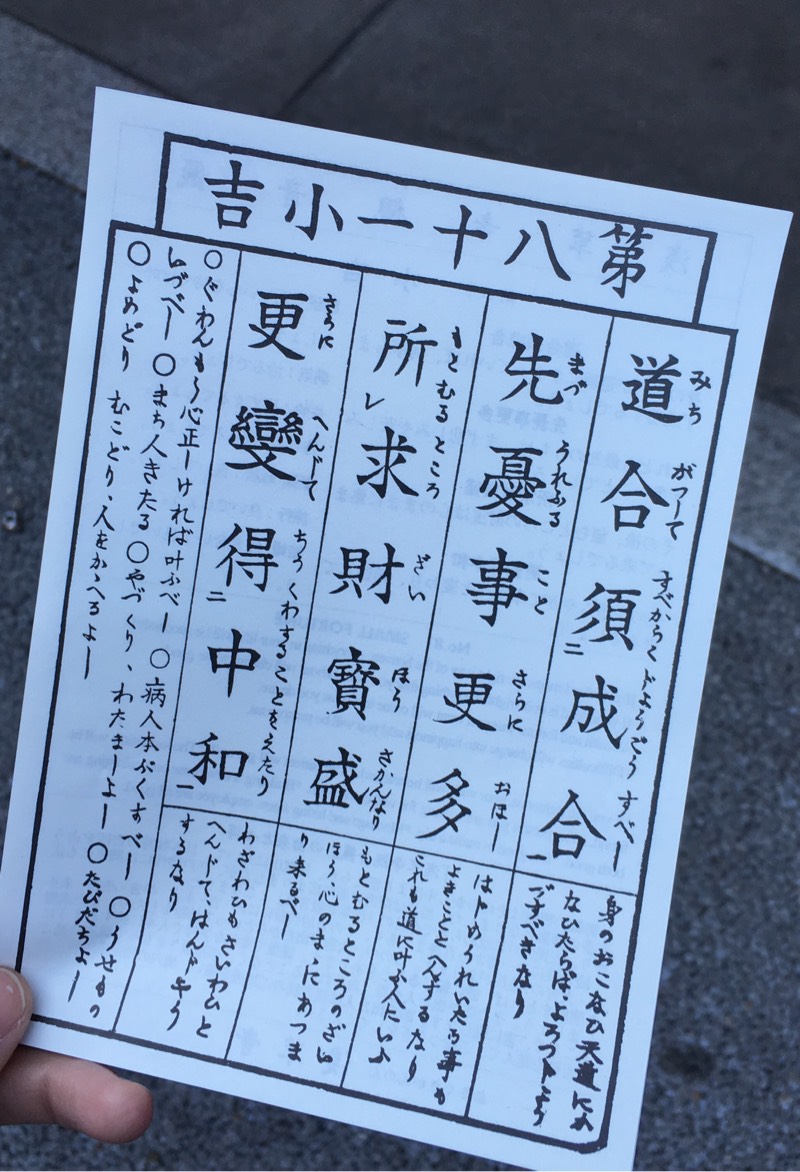 第八十一小吉
道合須成合
みち がつして すべからく じようごう すべし
身のおこなひ天道にか
なひたらば、よろづ
ごすべきなり
先憂事更多
まづ うれふる こと さらに おほし
はじめうれいたる事も
よきこととへんずるなり
これも道に叶ふ人にいふ
所レ求財寶盛
もとむるところ ざい ほう さかんなり
もとむるところのざい
ほう、心のまゝにあつま
り来るべし
更變得二中和一
さらに へんじて ちうくわすることをえたり
わざわひもさいわひと
へんじて、はんじやう
するなり
〇ぐわんもう心正しければ叶ふべし 〇病人本ぶくすべし 〇うせもの
いづべし 〇まち人きたる 〇やづくり、わたましよし 〇たびだちよし
〇よめどり むこどり、人をかゝへるよし